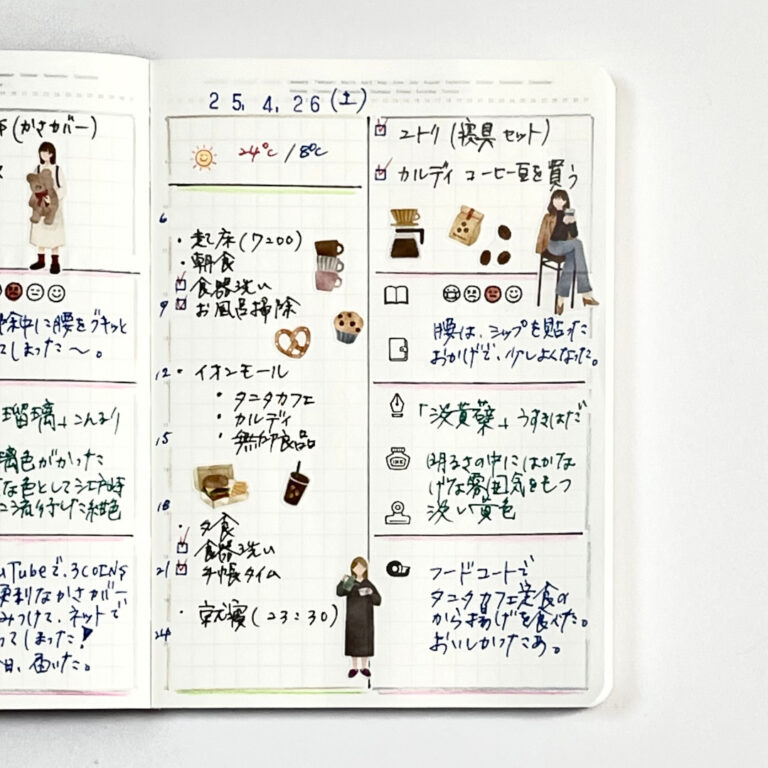 (かさカバー)
中に腰をグキッと
てしまった〜。
瑠璃」こんるり
璃色がかった
な色として江戸時
に流行した紺色
uTubeで、3COINS
便利なかさカバー
みつけて、ネットで
ってしまった!
日、届いた。
25.4.26(土)
24℃/8℃
6
・起床(7:00)
・朝食
食器洗い
9
お風呂掃除
12
・イオンモール
・タニタカフェ
・カルディ
15
・無印良品
18
・夕食
食器洗い
21
手帳タイム
・就寝(23:30)
24
ニトリ(寝具セット)
カルディ コーヒー豆を買う
腰は、シップを貼った
おかげで、少しよくなった。
「浅黄蘗」うすきはだ
明るさの中にはかな
げな雰囲気をもつ
浅い黄色
INK
フードコートで
タニタカフェ定食の
から揚げを食べた。
おいしかったあ。